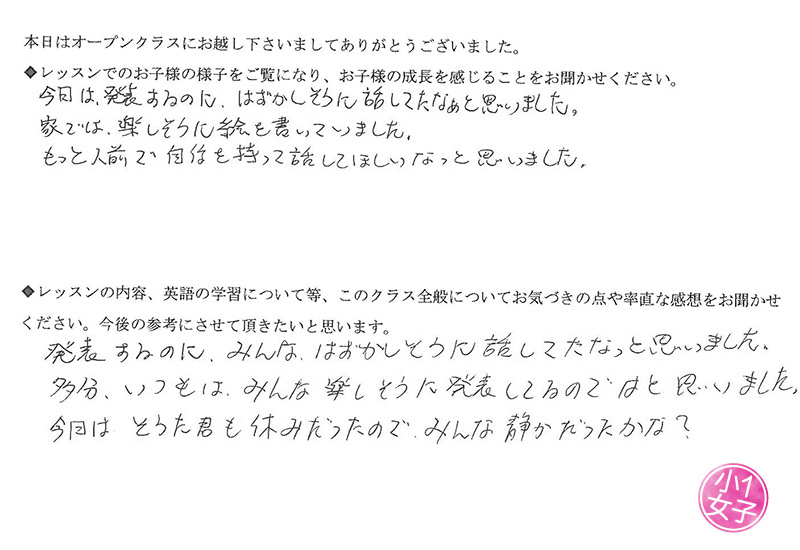 本日はオープンクラスにお越し下さいましてありがとうございました。
◆レッスンでのお子様の様子をご覧になり、お子様の成長を感じることをお聞かせください。
今日は、発表するのに、はずかしそうに話してたなぁと思いました。
家では、楽しそうに絵を書いていました。
もっと人前で自信を持って話してほしいなっと思いました。
◆レッスンの内容、英語の学習について等、このクラス全般についてお気づきの点や率直な感想をお聞かせ
ください。今後の参考にさせて頂きたいと思います。
発表するのに、みんな、はずかしそうに話してたなっと思いました、
多分、いつもは、みんな楽しそうに発表してるのではと思いました、
今日は そうた君も休みだったので、みんな静かだったかな?
小1
女子